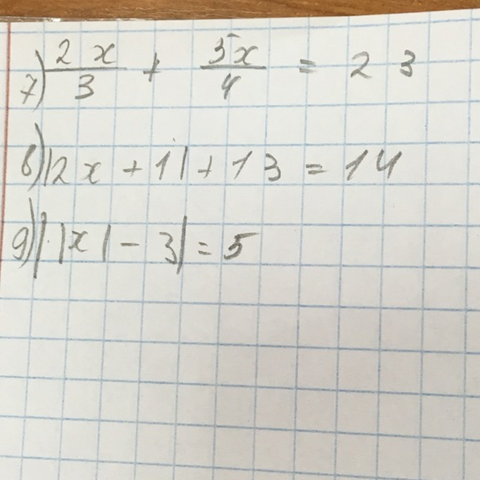 7) 2x/3 + 5x/4 = 23
8) |2x + 1| + 13 = 14
9) ||x| - 3| = 5